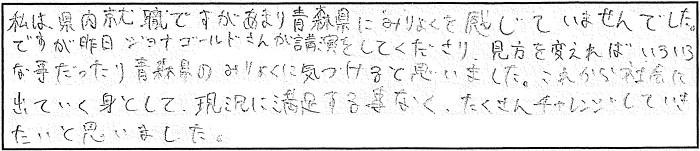 私は県内就職ですがあまり青森県にみりょくを感じていませんでした。
ですが昨日ジョナゴールドさんが講演をしてくださり、見方を変えればいろいろ
な事だったり青森県のみりょくに気づけると思いました。これから社会に
出ていく身として、現況に満足する事なく、たくさんチャレンジしていき
たいと思いました。